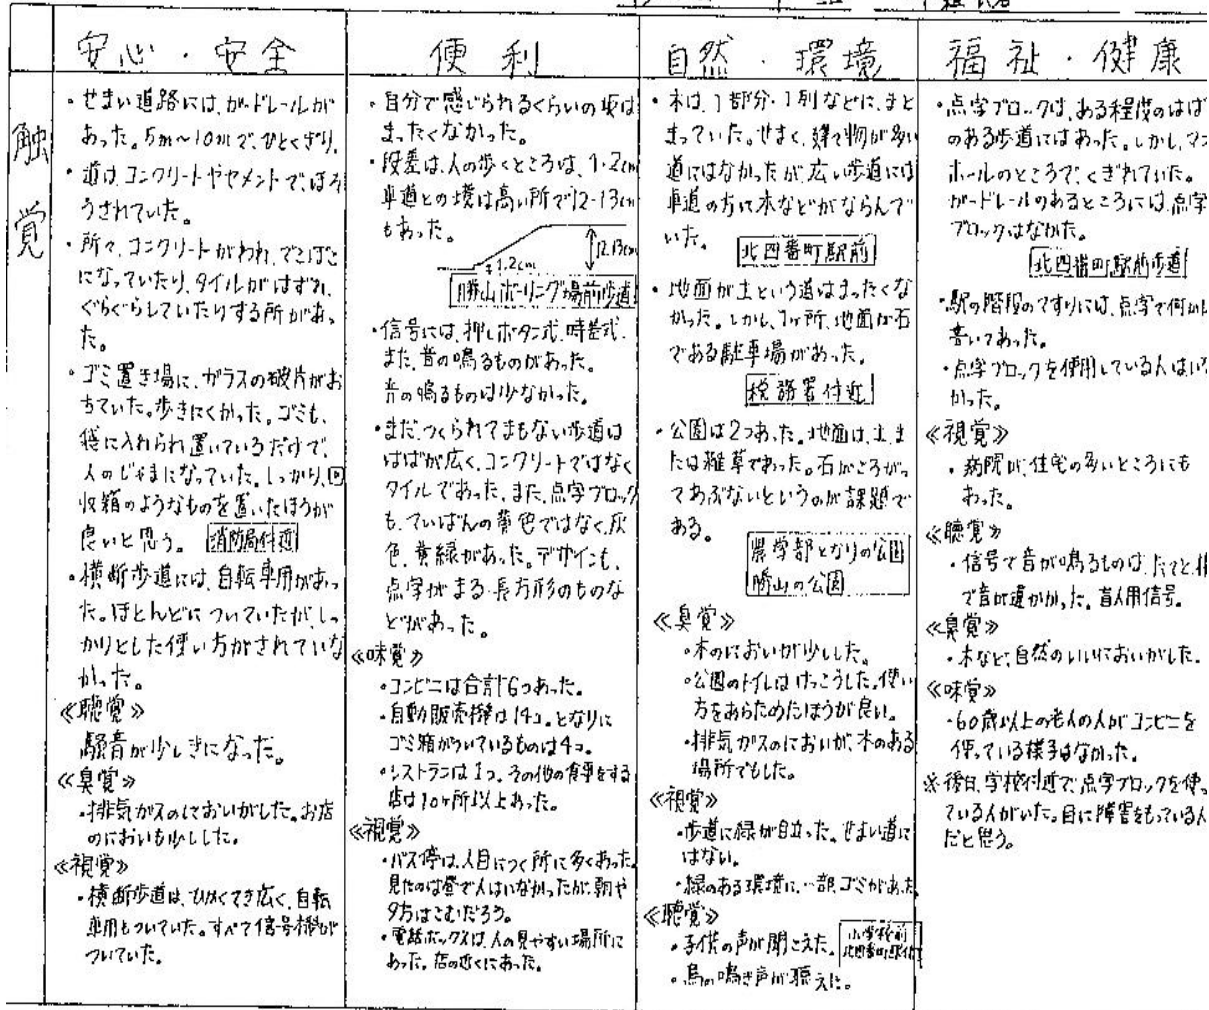 安心・安全
触覚
・せまい道路には、ガードレールが
あった。5m〜10mで、ひとくぎり。
・道は、コンクリートやセメントで、ほそ
うされていた。
・所々、コンクリートがわれ、でこぼこ
になっていたり、タイルがはずれ、
ぐらぐらしていたりする所があっ
た。
・ゴミ置き場に、ガラスの破片がお
ちていた。歩きにくかった。ゴミも、
袋に入れられ置いているだけで、
人のじゃまになっていた。しっかり、回
収箱のようなものを置いたほうが
良いと思う。 消防局付近
・横断歩道には、自転車用があっ
た。ほとんどについていたが、しっ
かりとした使い方がされていな
かった。
≪聴覚≫
騒音が少しきになった。
≪臭覚≫
・排気ガスのにおいがした。お店
のにおいも少しした。
≪視覚≫
・横断歩道は、ひかくてき広く、自転
車用もついていた。すべて信号機が
ついていた。
便利
・自分で感じられるくらいの坂は
まったくなかった。
・段差は、人の歩くところは、1・2cm
車道との境は高い所で12-13cm
もあった。
1.2cm
12.13cm
勝山ボーリング場前歩道
・信号には、押しボタン式、時差式、
また、音の鳴るものがあった。
音の鳴るものは少なかった。
・まだ、つくられてまもない歩道は
はばが広く、コンクリートではなく
タイルであった。また、点字ブロック
も、ていばんの黄色ではなく、灰
色、黄緑があった。デザインも、
点字がまる・長方形のものな
どがあった。
≪味覚≫
・コンビニは合計6つあった。
・自動販売機は14コ。となりに
ゴミ箱がついているものは4コ。
・レストランは1つ。その他の食事をする
店は10ヶ所以上あった。
≪視覚≫
・バス停は、人目につく所に多くあった。
見たのは昼で人はいなかったが、朝や
夕方はこむだろう。
・電話ボックスは、人の見やすい場所に
あった。店の近くにあった。
自然・環境
・木は、1部分・1列などに、まと
まっていた。せまく、建て物が多い
道にはなかったが、広い歩道には
車道の方に木などがならんで
いた。 北四番町駅前
・地面が土という道はまったくな
かった。しかし、1ヶ所、地面が石
である駐車場があった。
税務署付近
・公園は2つあった。地面は、土、ま
たは雑草であった。石がころがっ
てあぶないというのが課題で
ある。
農学部となりの公園
勝山の公園
≪臭覚≫
・木のにおいが少しした。
・公園のトイレはけっこうした。使い
方をあらためたほうが良い。
・排気ガスのにおいが、木のある
場所でもした。
≪視覚≫
・歩道に緑が目立った。せまい道に
はない。
・緑のある環境に、一部、ゴミがあった
≪聴覚≫
・子供の声が聞こえた。 小学校前
北四番町駅付近
・鳥の鳴き声が聴えた。
福祉・健康
・点字ブロックは、ある程度のはば
のある歩道にはあった。しかし、マン
ホールのところで、くぎれていた。
ガードレールのあるところには、点字
ブロックはなかった。
北四番町駅前歩道
・駅の階段のてすりには、点字で何か
書いてあった。
・点字ブロックを使用している人はいな
かった。
≪視覚≫
・病院が、住宅の多いところにも
あった。
≪聴覚≫
・信号で音が鳴るものは、たてと、横
で音が違かった。盲人用信号。
≪臭覚≫
・木など、自然のいいにおいがした。
≪味覚≫
・60歳以上の老人の人がコンビニを
使っている様子はなかった。
※後日、学校付近で、点字ブロックを使っ
ている人がいた。目に障害をもっている人
だと思う。